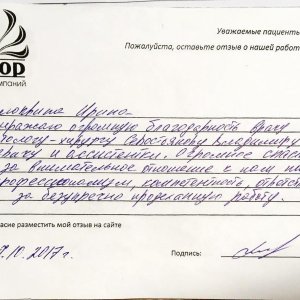 Уважаемые пациенты
Пожалуйста, оставьте отзыв о нашей работ
ор
компаний
Ирина
выражаю огромную благодарность врачу
хирургу Владимиру
врачу и ассистентам. Огромное спас
за внимательное отношение к
профессионализм, компетентность, ответст
за безупречно проделанную работу.
асие разместить мой отзыв на сайте
.10.2017г.
Подпись: